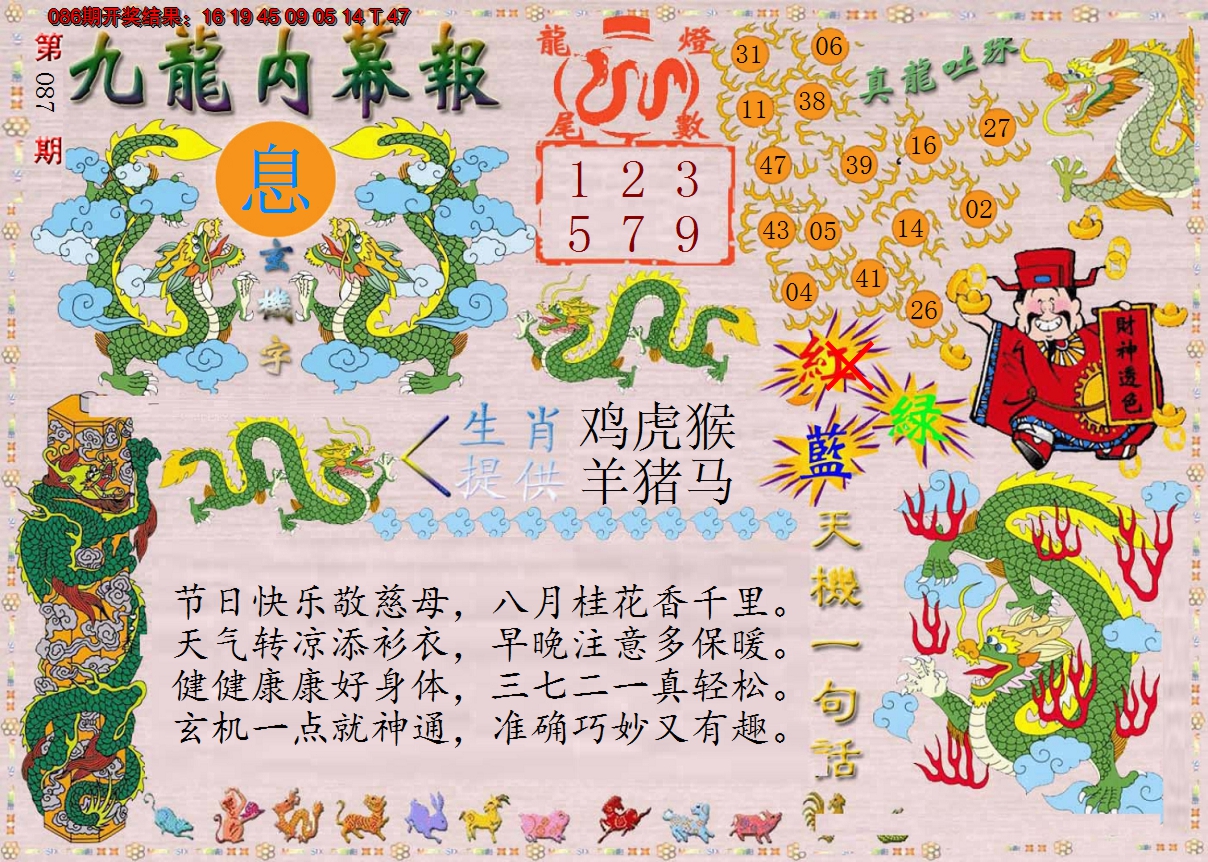 086期开奖结果：16 19 45 09 05 14 T 47
第087期
九龍内幕報
息
玄機字
龍燈
尾數
1 2 3
5 7 9
真龍吐珠
31
06
11
38
47
39
16
27
43
05
14
02
04
41
26
財神透色
紅
綠
藍
生肖 鸡虎猴
提供 羊猪马
节日快乐敬慈母，八月桂花香千里。
天气转凉添衫衣，早晚注意多保暖。
健健康康好身体，三七二一真轻松。
玄机一点就神通，准确巧妙又有趣。
天機一句话